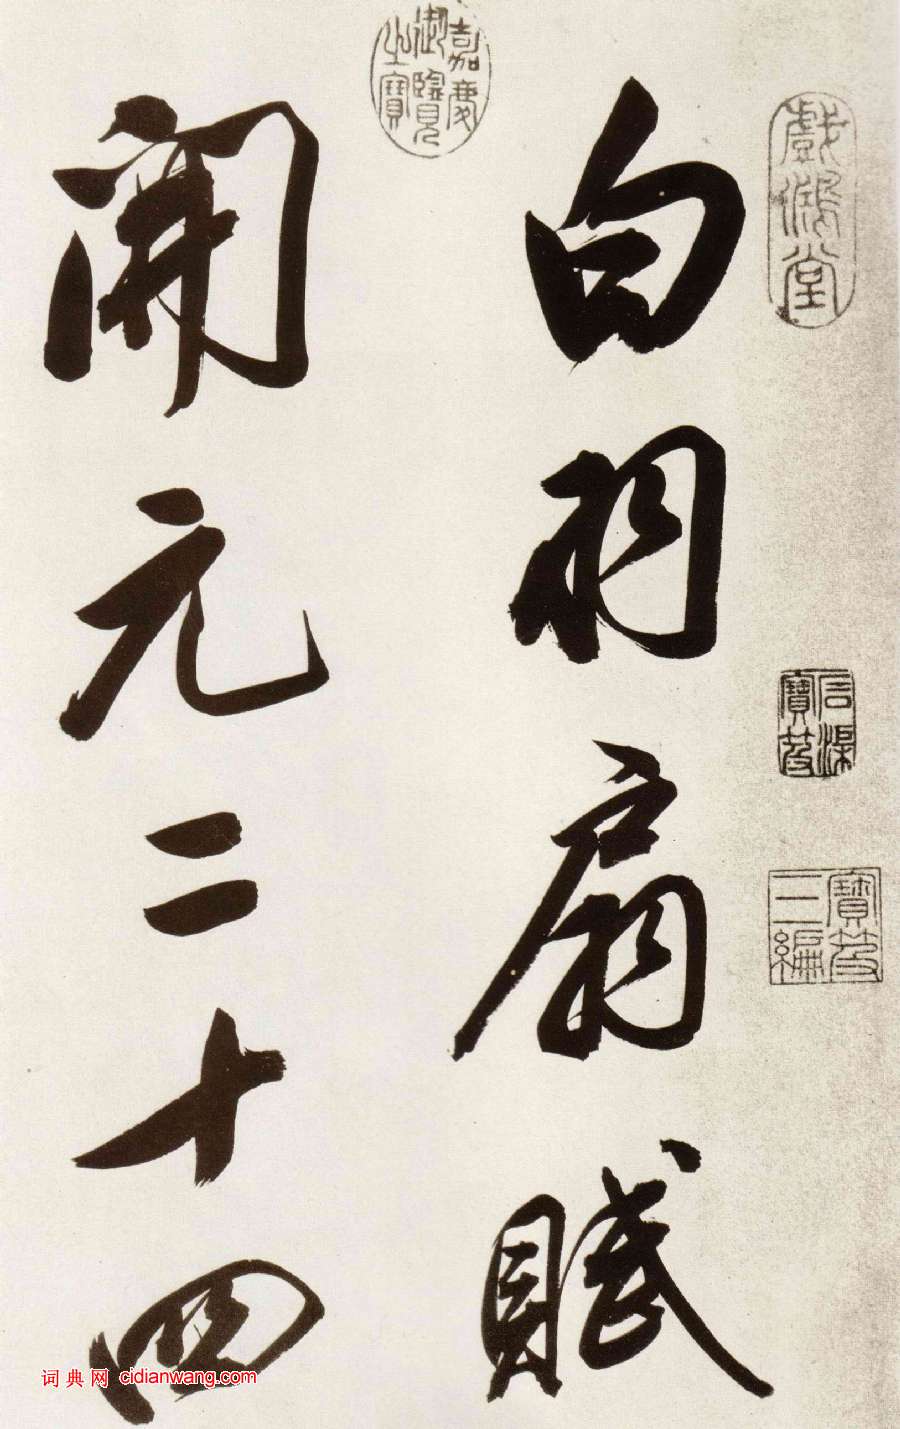 白羽扇賦
開元二十四
嘉慶御覽之寶
戲鴻堂
石渠寶笈
寶笈三編
词典网 cidianwang.com